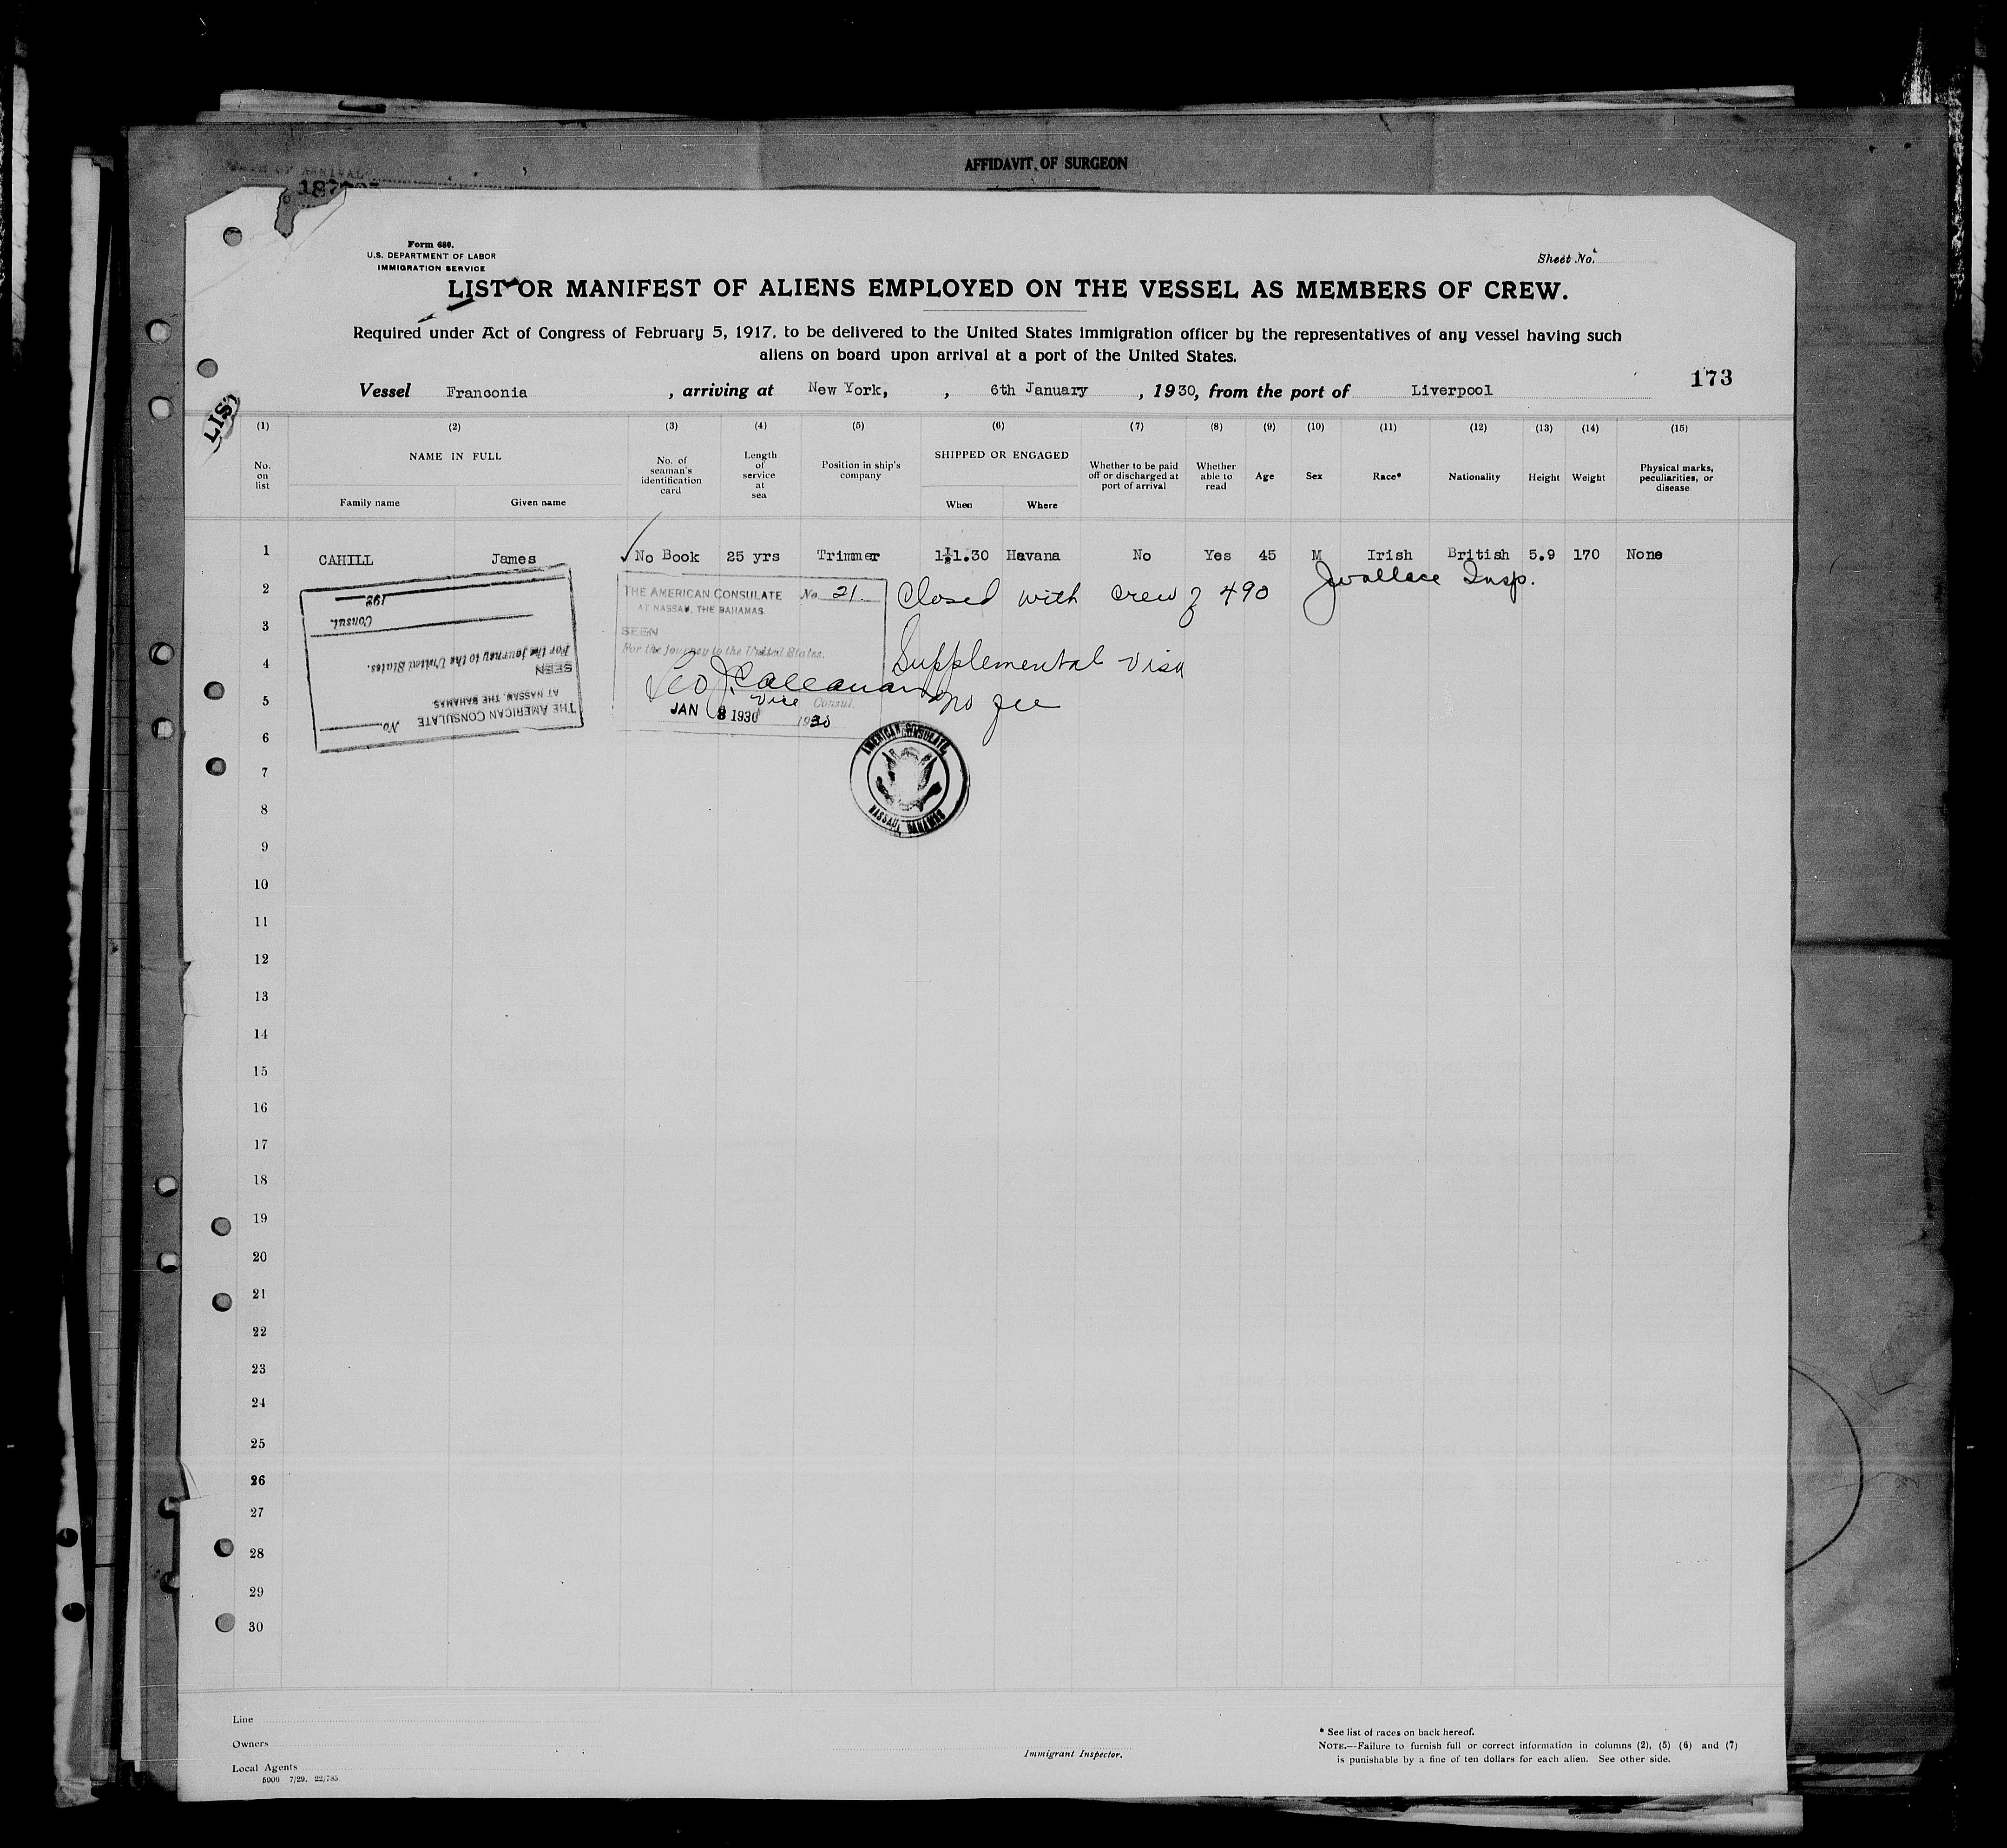 AFFIDAVIT OF SURGEON
Form 680.
U.S. DEPARTMENT OF LABOR
IMMIGRATION SERVICE
Sheet No.
LIST OR MANIFEST OF ALIENS EMPLOYED ON THE VESSEL AS MEMBERS OF CREW.
Required under Act of Congress of February 5, 1917, to be delivered to the United States immigration officer by the representatives of any vessel having such
aliens on board upon arrival at a port of the United States.
173
Vessel Franconia , arriving at New York, , 6th January , 1930, from the port of Liverpool
LIS
(1) (2) (3) (4) (5) (6) (7) (8) (9) (10) (11) (12) (13) (14) (15)
No. on list NAME IN FULL No. of seaman's identification card Length of service at sea Position in ship's company SHIPPED OR ENGAGED Whether to be paid off or discharged at port of arrival Whether able to read Age Sex Race* Nationality Height Weight Physical marks, peculiarities, or disease
Family name Given name When Where
1 CAHILL James No Book 25 yrs Trimmer 1.1.30 Havana No Yes 45 M Irish British 5.9 170 None
J Wallace Insp.
2 Closed with crew of 490
THE AMERICAN CONSULATE No. 21
AT NASSAU, THE BAHAMAS.
SEEN
For the journey to the United States.
Leo J. Callanan
Vice Consul.
JAN 3 1930 1930
Supplemental visa
no fee
THE AMERICAN CONSULATE No.
AT NASSAU, THE BAHAMAS
SEEN
For the journey to the United States.
Consul.
192
AMERICAN CONSULATE,
NASSAU, BAHAMAS
3
4
5
6
7
8
9
10
11
12
13
14
15
16
17
18
19
20
21
22
23
24
25
26
27
28
29
30
Line
Owners
Local Agents
5000 7/29. 22/785
Immigrant Inspector.
* See list of races on back hereof.
NOTE.—Failure to furnish full or correct information in columns (2), (5) (6) and (7)
is punishable by a fine of ten dollars for each alien. See other side.